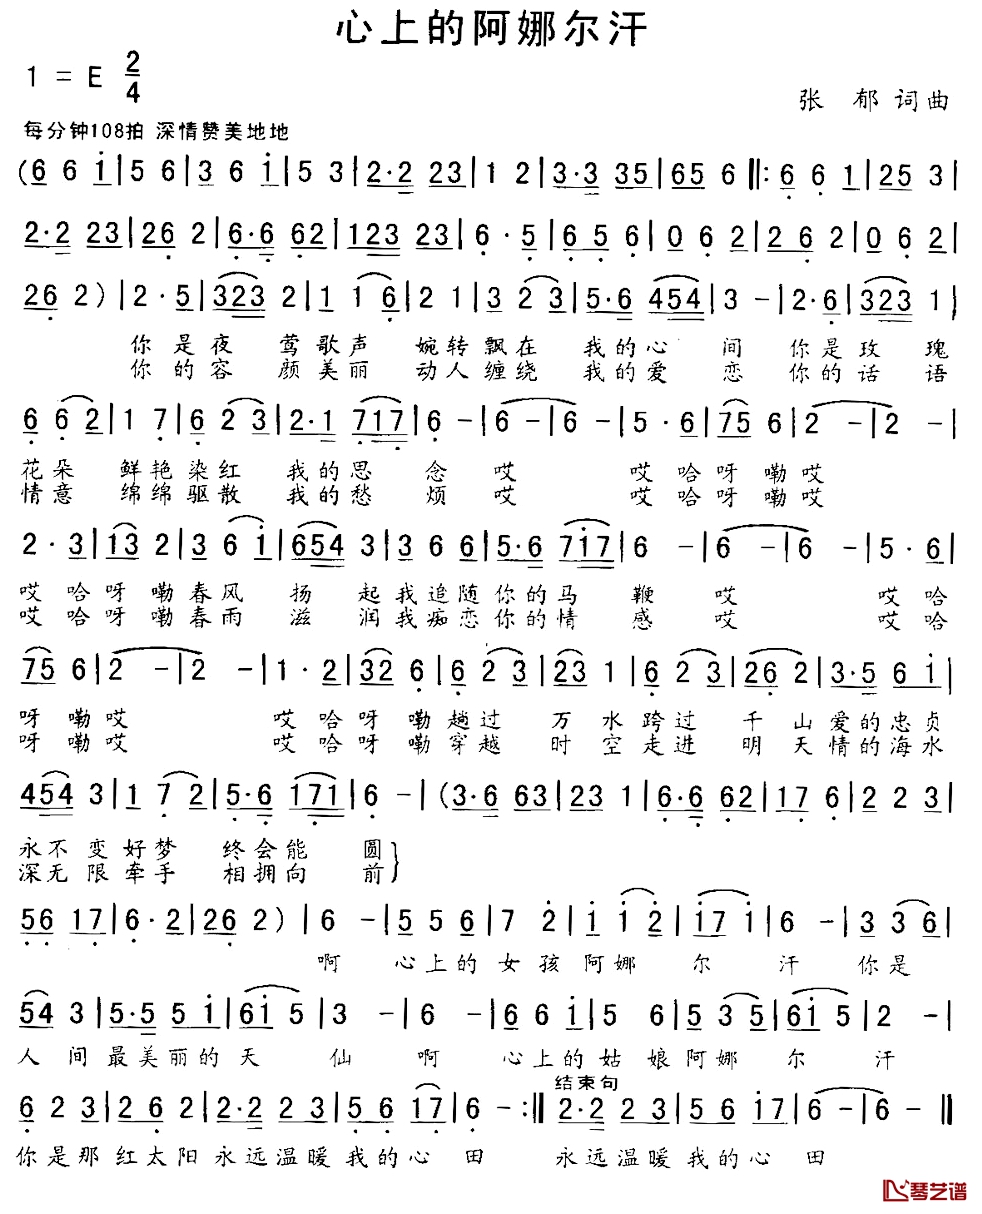 心上的阿娜尔汗
1 = E 2/4
张 郁 词曲
每分钟108拍 深情赞美地地
(6 6 i|5 6|3 6 i|5 3|2·2 23|1 2|3·3 35|65 6‖:6 6 1|25 3|
2·2 23|26 2|6·6 62|123 23|6·5|6 5 6|0 6 2|2 6 2|0 6 2|
26 2)|2·5|323 2|1 1 6|2 1|3 2 3|5·6 454|3 -|2·6|323 1|
你 是 夜 莺 歌 声 婉转飘在 我的心 间 你是玫 瑰
你 的 容 颜 美 丽 动人缠绕 我的爱 恋 你的话 语
6 6 2|1 7|6 2 3|2·1 717|6 -|6 -|6 -|5·6|75 6|2 -|2 -|
花朵 鲜艳染红 我的思 念 哎 哎哈呀嘞哎
情意 绵绵驱散 我的愁 烦 哎 哎哈呀嘞哎
2·3|13 2|3 6 i|654 3|3 6 6|5·6 7i7|6 -|6 -|6 -|5·6|
哎 哈 呀 嘞春风 扬 起我追随你的马 鞭 哎 哎哈
哎 哈 呀 嘞春雨 滋 润我痴恋你的情 感 哎 哎哈
75 6|2 -|2 -|1·2|32 6|6 2 3|23 1|6 2 3|26 2|3·5 6 i|
呀 嘞哎 哎 哈呀 嘞趟过 万 水跨过 千 山爱的忠贞
呀 嘞哎 哎 哈呀 嘞穿越 时 空走进 明 天情的海水
454 3|1 7 2|5·6 171|6 -|(3·6 63|23 1|6·6 62|17 6|2 2 3|
永不 变好梦 终会能 圆}
深无 限牵手 相拥向 前}
56 17|6·2|26 2)|6 -|5 5 6|7 2|i i 2|i7 i|6 -|3 3 6|
啊 心上的 女孩阿娜 尔 汗 你是
54 3|5·5 5 i|6i 5|3 -|6 -|6 6 i|5 6|5 3 5|6i 5|2 -|
人 间最美丽的天 仙 啊 心上的姑 娘阿娜 尔 汗
结束句
6 2 3|2 6 2|2·2 2 3|5 6 17|6 -:‖2·2 2 3|5 6 17|6 -|6 -‖
你是那红太阳永远温暖我的心 田 永远温暖我的心 田
琴艺谱